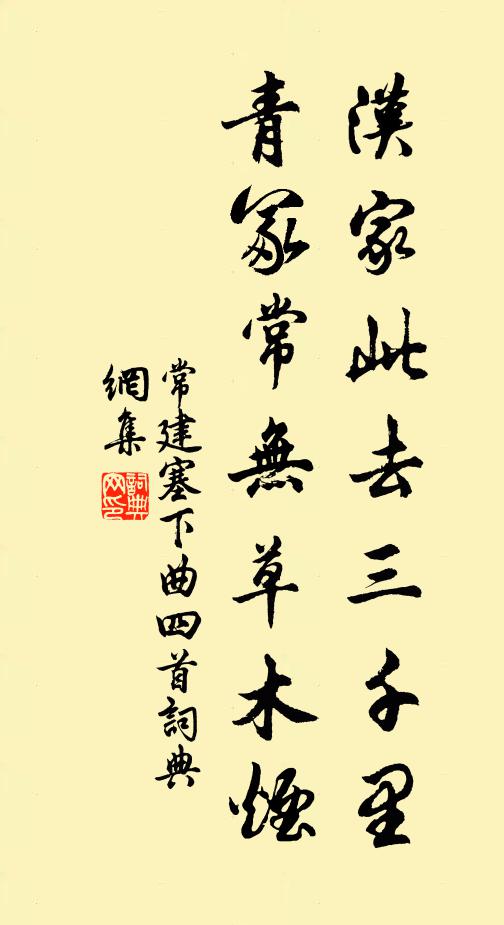 漢家此去三千里
青冢常無草木煙
常建塞下曲四首詞典
網集
詞典網印